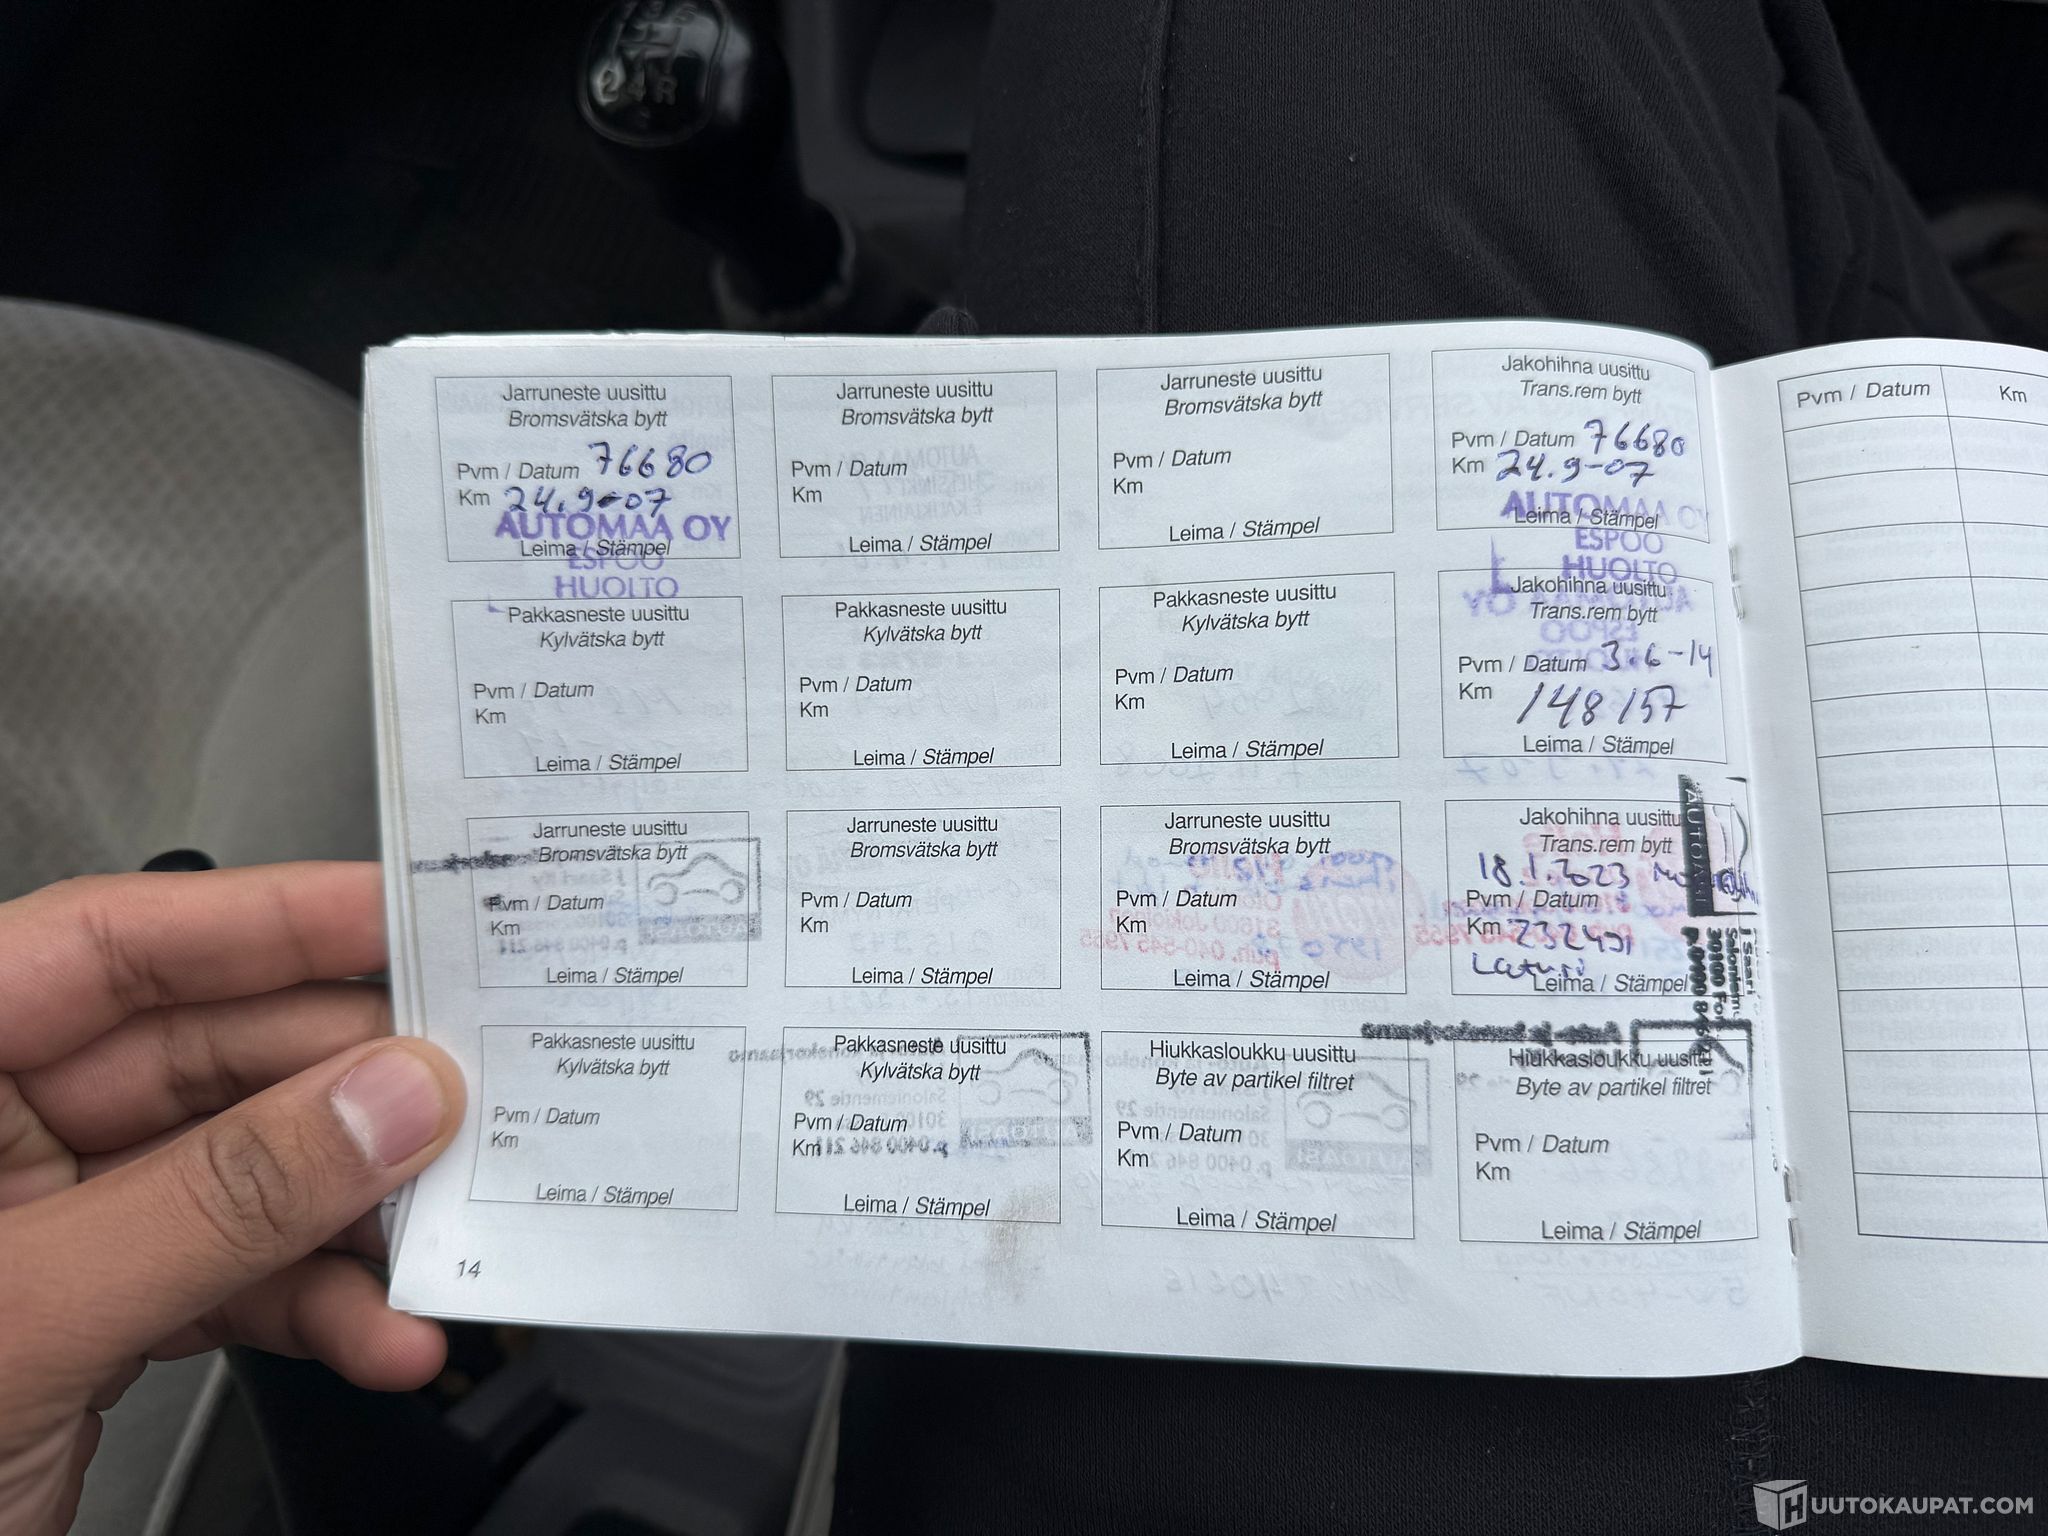 2 4 R
Jarruneste uusittu
Bromsvätska bytt
Pvm / Datum 76680
Km 24.9-07
AUTOMAA OY
Leima / Stämpel
ESPOO
HUOLTO
Jarruneste uusittu
Bromsvätska bytt
Pvm / Datum
Km
Leima / Stämpel
Jarruneste uusittu
Bromsvätska bytt
Pvm / Datum
Km
Leima / Stämpel
Jakohihna uusittu
Trans.rem bytt
Pvm / Datum 76680
Km 24.9-07
AUTOMAA OY
Leima / Stämpel
ESPOO
HUOLTO
Pakkasneste uusittu
Kylvätska bytt
Pvm / Datum
Km
Leima / Stämpel
Pakkasneste uusittu
Kylvätska bytt
Pvm / Datum
Km
Leima / Stämpel
Pakkasneste uusittu
Kylvätska bytt
Pvm / Datum
Km
Leima / Stämpel
Jakohihna uusittu
Trans.rem bytt
Pvm / Datum 3.6-14
Km 148157
Leima / Stämpel
Jarruneste uusittu
Bromsvätska bytt
Pvm / Datum
Km
Leima / Stämpel
Jarruneste uusittu
Bromsvätska bytt
Pvm / Datum
Km
Leima / Stämpel
Jarruneste uusittu
Bromsvätska bytt
Pvm / Datum
Km
Leima / Stämpel
Jakohihna uusittu
Trans.rem bytt
18.1.2023
Pvm / Datum
Km 232491
Leima / Stämpel
AUTOASI
J Saari
Pakkasneste uusittu
Kylvätska bytt
Pvm / Datum
Km
Leima / Stämpel
Pakkasneste uusittu
Kylvätska bytt
Pvm / Datum
Km
Leima / Stämpel
Hiukkasloukku uusittu
Byte av partikel filtret
Pvm / Datum
Km
Leima / Stämpel
Hiukkasloukku uusittu
Byte av partikel filtret
Pvm / Datum
Km
Leima / Stämpel
14
Pvm / Datum
Km
HUUTOKAUPAT.COM